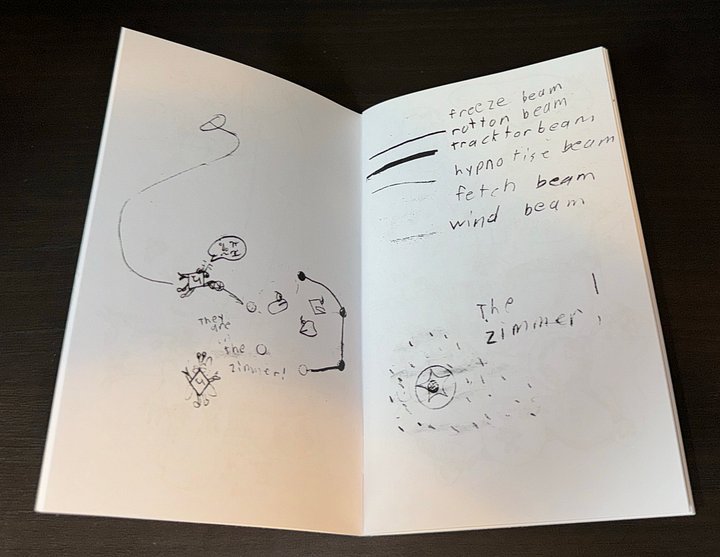 They
are
the
zimmer!
freeze beam
rotton beam
tracktorbeam
hypnotise beam
fetch beam
wind beam
The
zimmer!